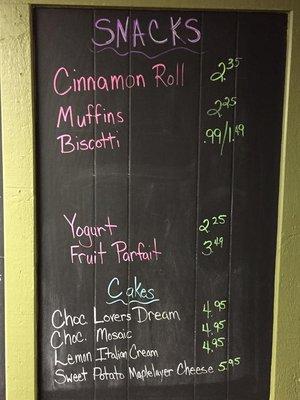 SNACKS
Cinnamon Roll 2.35
Muffins 2.25
Biscotti .99/1.49
Yogurt 2.25
Fruit Parfait 3.49
Cakes
Choc. Lovers Dream 4.95
Choc. Mosaic 4.95
Lemon Italian Cream 4.95
Sweet Potato Maplelayer Cheese 5.95